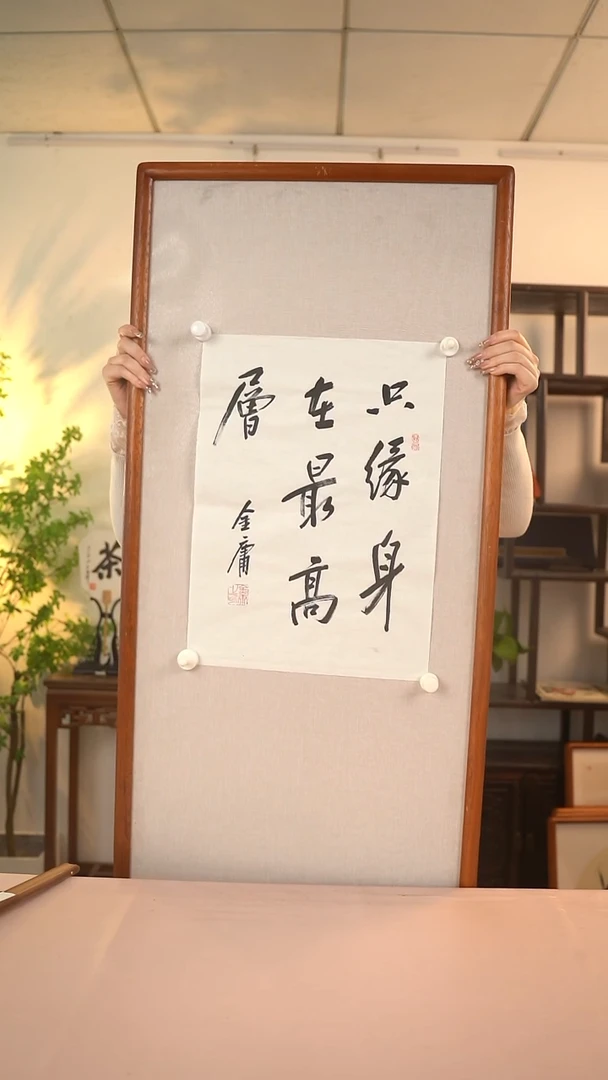 只缘身
在最高
層
金庸
茶